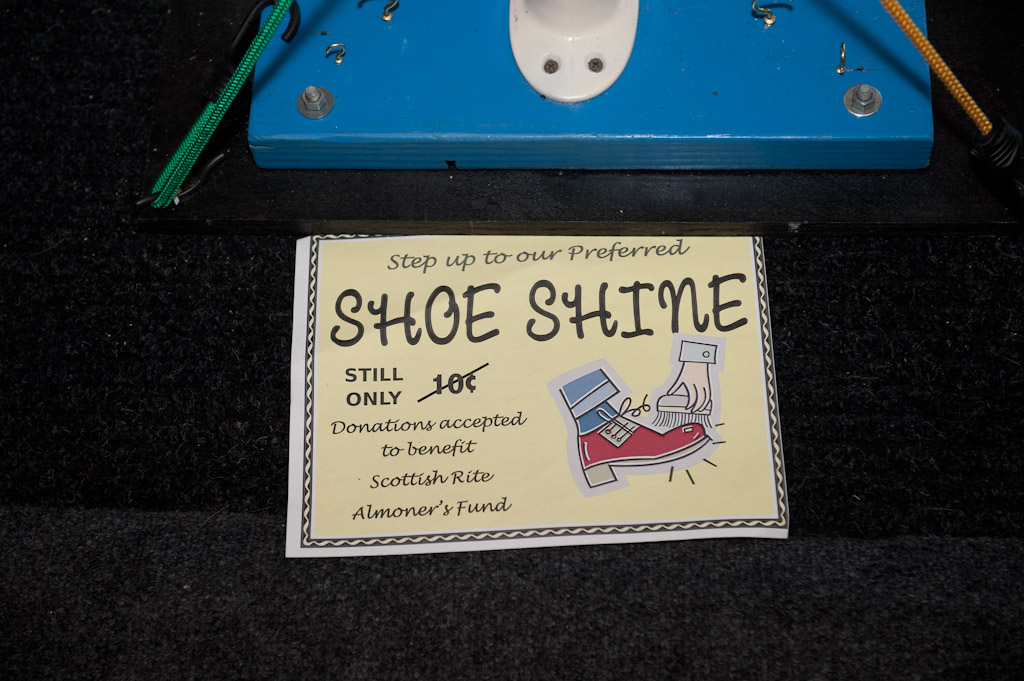 Step up to our Preferred
SHOE SHINE
STILL
ONLY
10¢
Donations accepted
to benefit
Scottish Rite
Almoner's Fund